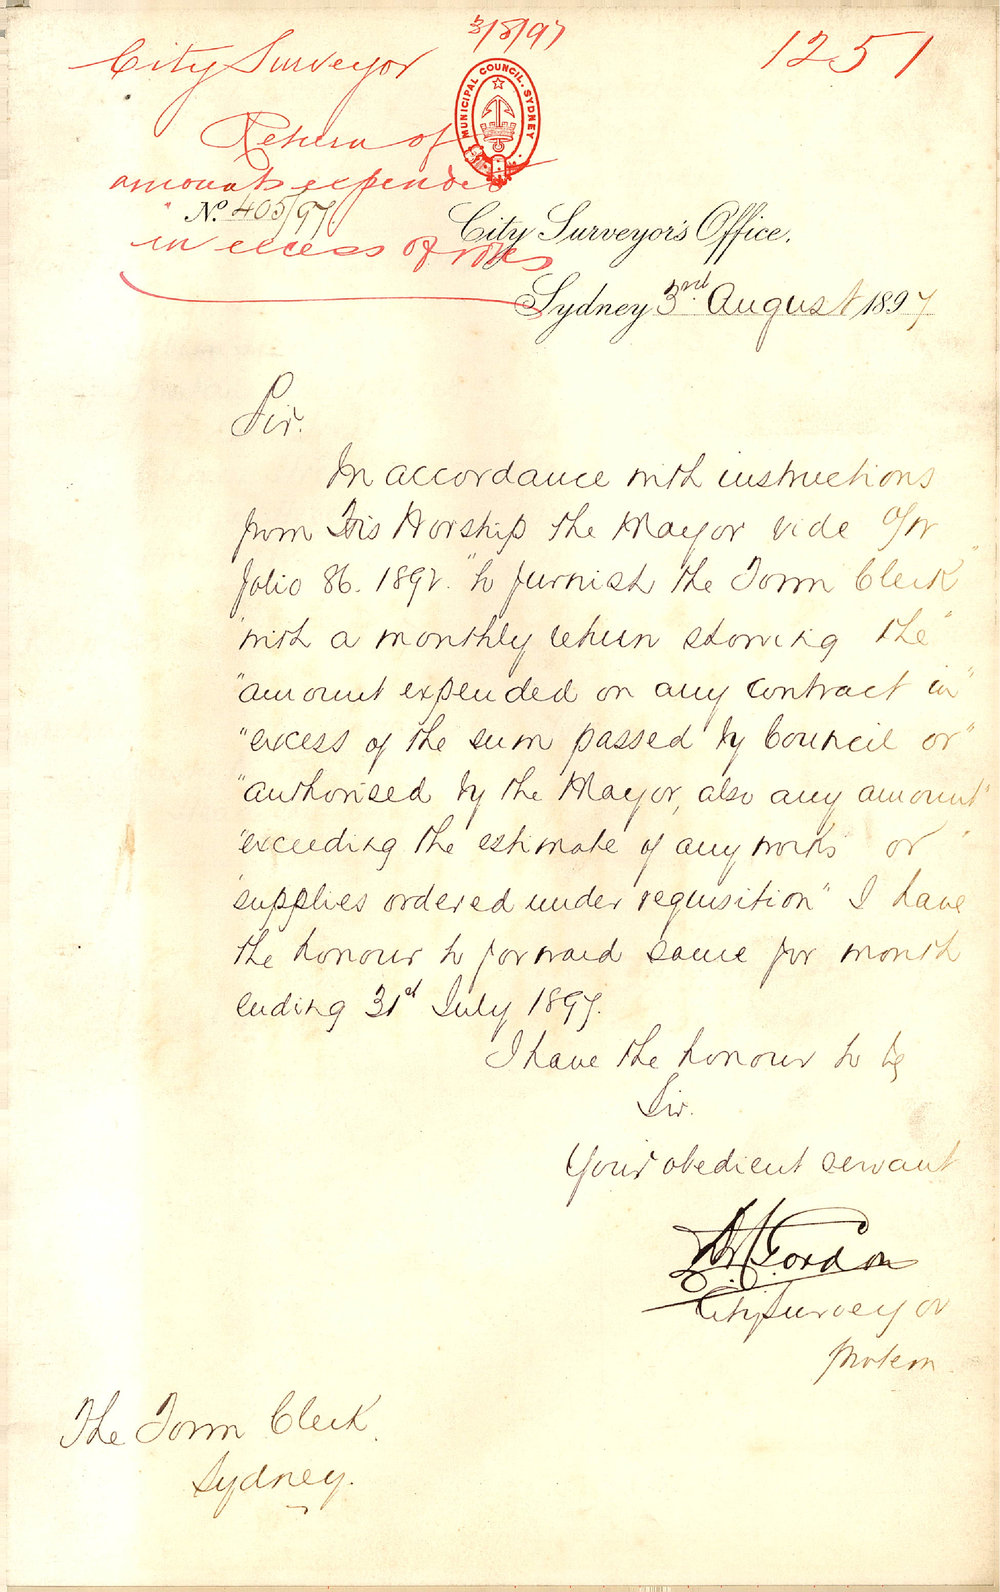 3/8/97
1251
City Surveyor
MUNICIPAL COUNCIL. SYDNEY
Return of
amounts expended
No. 405/97
in excess of votes
City Surveyor's Office.
Sydney 3rd. August 1897
Sir.
In accordance with instructions
from His Worship the Mayor vide
folio 86. 189 "to furnish the Town Clerk"
"with a monthly return showing the"
"amount expended on any contract in"
"excess of the sum passed by Council or"
"authorised by the Mayor, also any amount"
"exceeding the estimate of any works or"
"supplies ordered under requisition" I have
the honour to forward same for month
ending 31st July 1897.
I have the honour to be
Sir.
Your obedient servant
Gordon
City Surveyor
protem.
The Town Clerk.
Sydney.